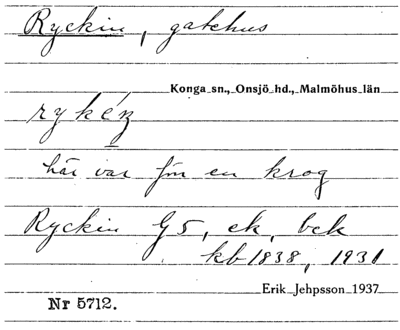 Ryckin, gatehus
Konga sn., Onsjö hd., Malmöhus län
rykéŋ
här var förr en krog
Ryckin G5, ek, bek
kb 1838, 1931
Erik Jehpsson 1937
Nr 5712.